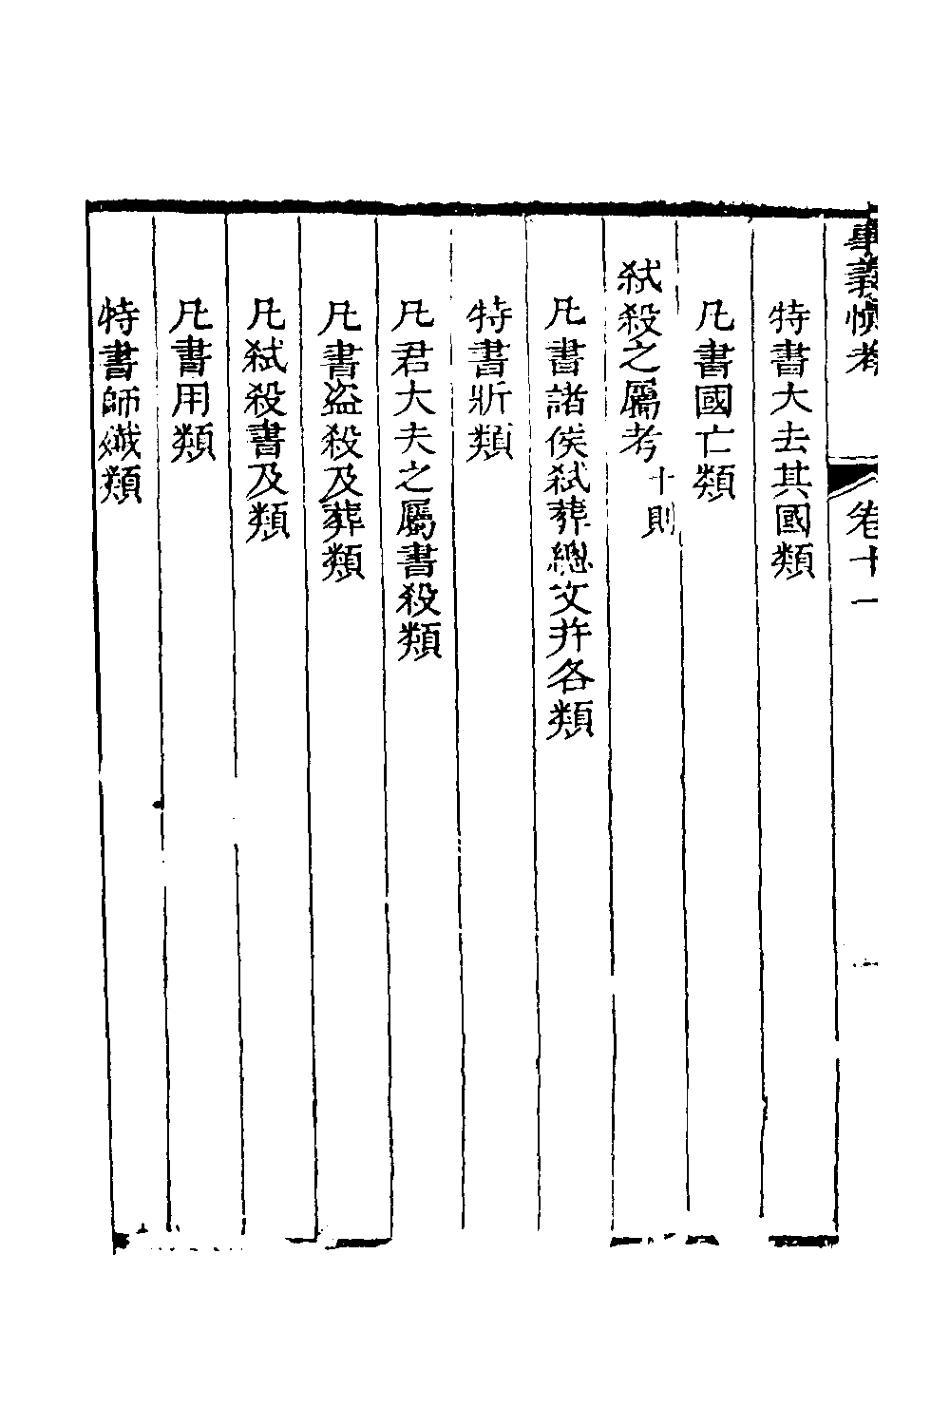 事義慎考 卷十一
特書大去其國類
凡書國亡類
弑殺之屬考十則
凡書諸侯弑葬總文并各類
特書斨類
凡君大夫之屬書殺類
凡書盗殺及葬類
凡弑殺書及類
凡書用類
特書師殲類